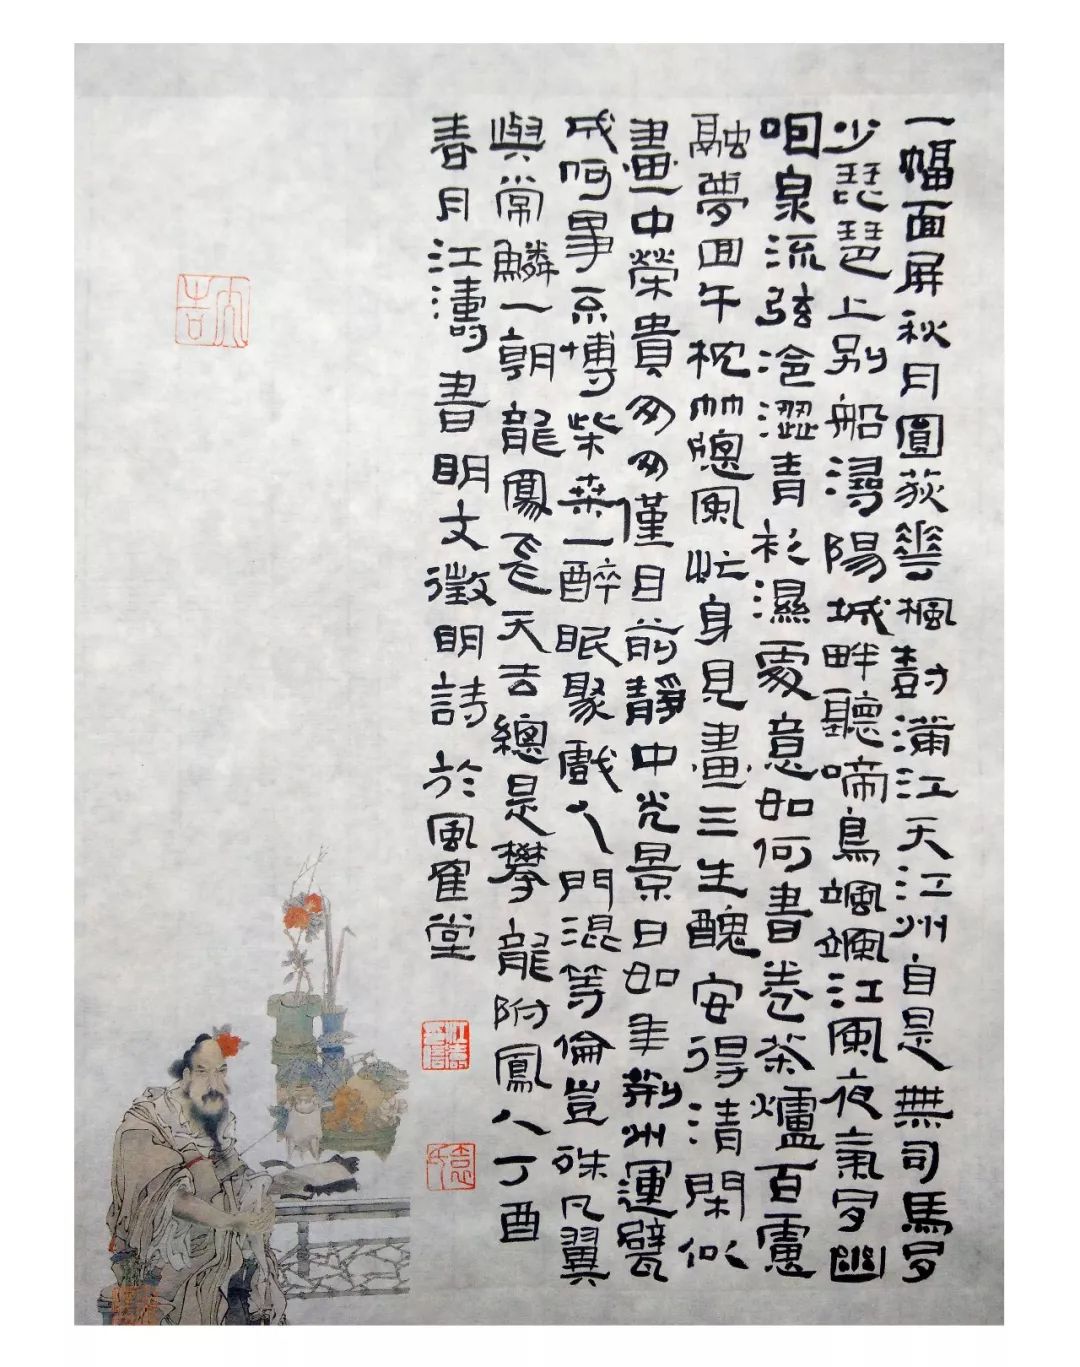 一幅面屏秋月圓荻華楓樹滿江天江州自是無司馬多
少琵琶上別船潯陽城畔聽啼鳥颯颯江風夜氣多幽
咽泉流弦冷澀青衫濕處意如何書卷茶爐百慮
融夢回午枕竹窗風忙身見畫三生醜安得清閑似
畫中榮貴匆匆僅目前靜中光景日如年荊州運甓
成何事不博柴桑一醉眠聚戲人門混等倫豈殊凡翼
與常鱗一朝龍鳳飛天去總是攀龍附鳳人丁酉
春月江濤書明文徵明詩於風隺堂
大吉